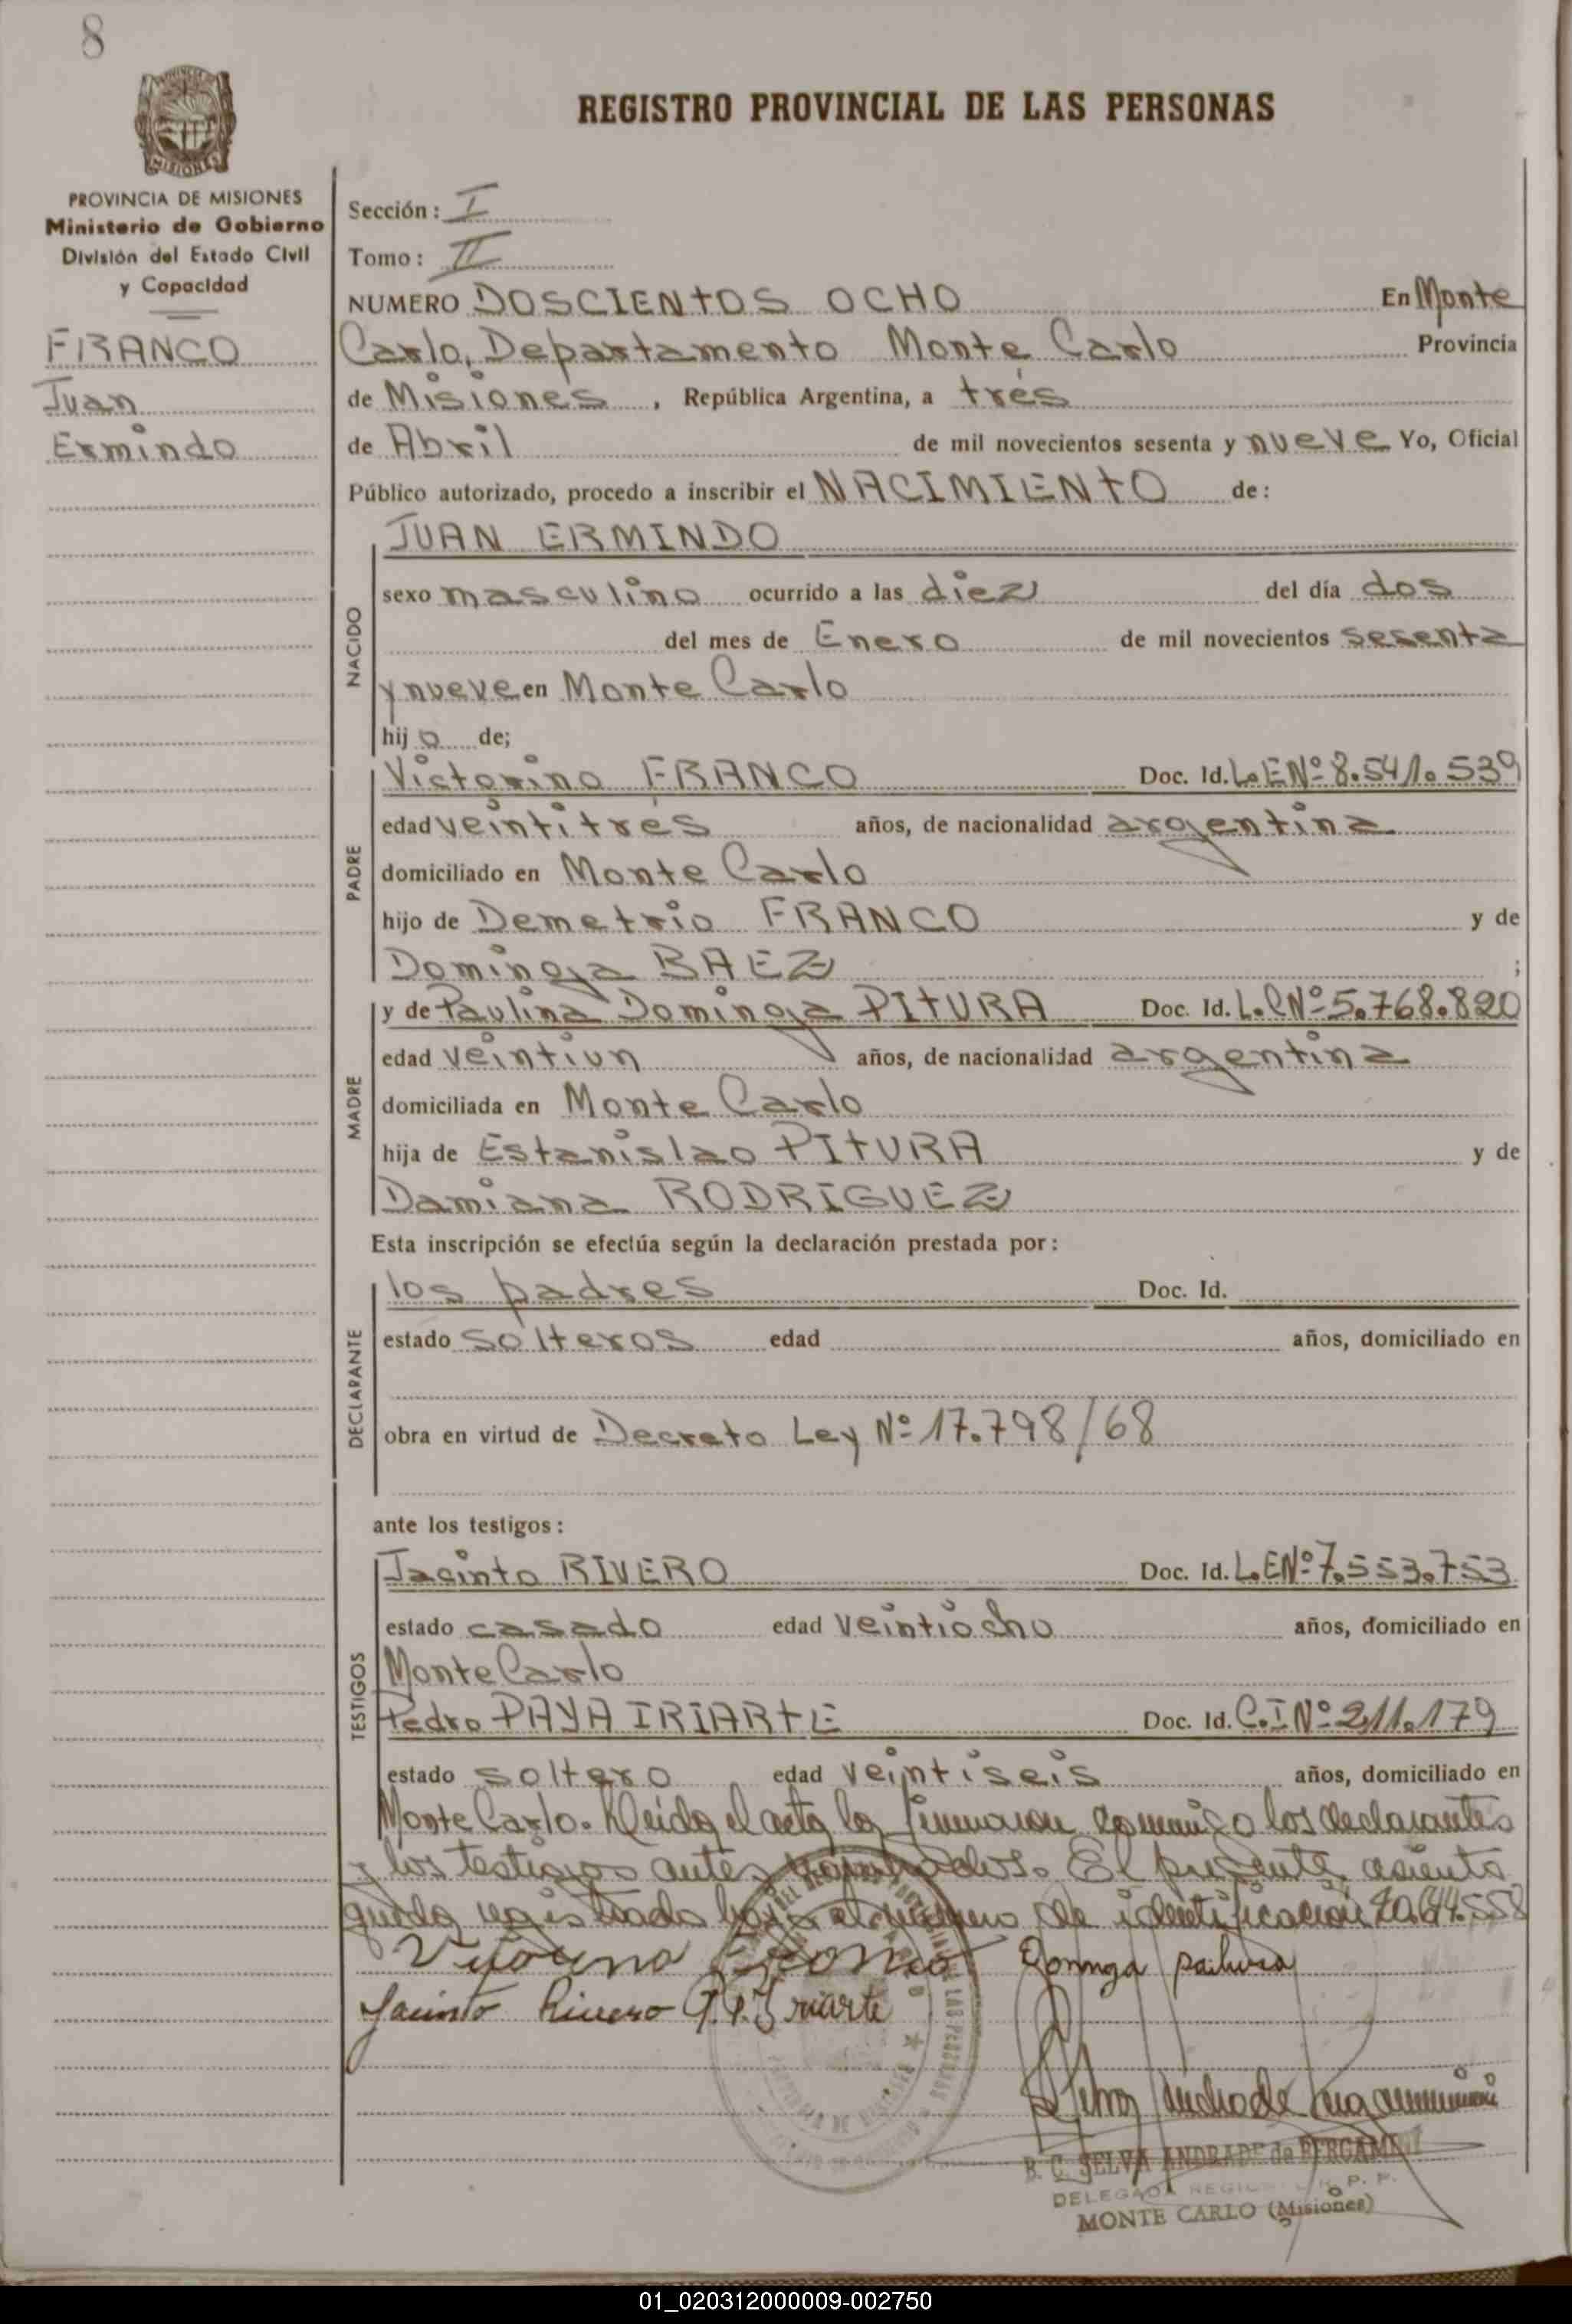 8
REGISTRO PROVINCIAL DE LAS PERSONAS
MISIONES
PROVINCIA DE MISIONES
Ministerio de Gobierno
División del Estado Civil
y Capacidad
FRANCO
Juan
Ermindo
Sección: I
Tomo: II
NUMERO DOSCIENTOS OCHO En Monte
Carlo, Departamento Monte Carlo Provincia
de Misiones, República Argentina, a tres
de Abril de mil novecientos sesenta y nueve Yo, Oficial
Público autorizado, procedo a inscribir el NACIMIENTO de:
NACIDO
JUAN ERMINDO
sexo masculino ocurrido a las diez del día dos
del mes de Enero de mil novecientos sesenta
y nueve en Monte Carlo
hijo de;
PADRE
Victorino FRANCO Doc. Id. L.E Nº 8.541.539
edad veintitrés años, de nacionalidad argentina
domiciliado en Monte Carlo
hijo de Demetrio FRANCO y de
Dominga BAEZ ;
MADRE
y de Paulina Dominga PITURA Doc. Id. L.C Nº 5.768.820
edad veintiun años, de nacionalidad argentina
domiciliada en Monte Carlo
hija de Estanislao PITURA y de
Damiana RODRIGUEZ
Esta inscripción se efectúa según la declaración prestada por:
DECLARANTE
los padres Doc. Id.
estado solteros edad años, domiciliado en
obra en virtud de Decreto Ley Nº 17.798/68
ante los testigos:
TESTIGOS
Jacinto RIVERO Doc. Id. L.E Nº 7.553.753
estado casado edad veintiocho años, domiciliado en
Monte Carlo
Pedro PAYA IRIARTE Doc. Id. C.I Nº 211.179
estado soltero edad veintiseis años, domiciliado en
Monte Carlo. Leida el acta la firmaron conmigo los declarantes
y los testigos antes nombrados. El presente asiento
queda registrado bajo el número de identificación 20.644.558
Vitorino Franco Dominga
Jacinto Rivero P. P. Iriarte
Selva Andrade
B. C. SELVA ANDRADE de BERGAMINI
DELEGADA R. P. P.
MONTE CARLO (Misiones)
01_020312000009-002750